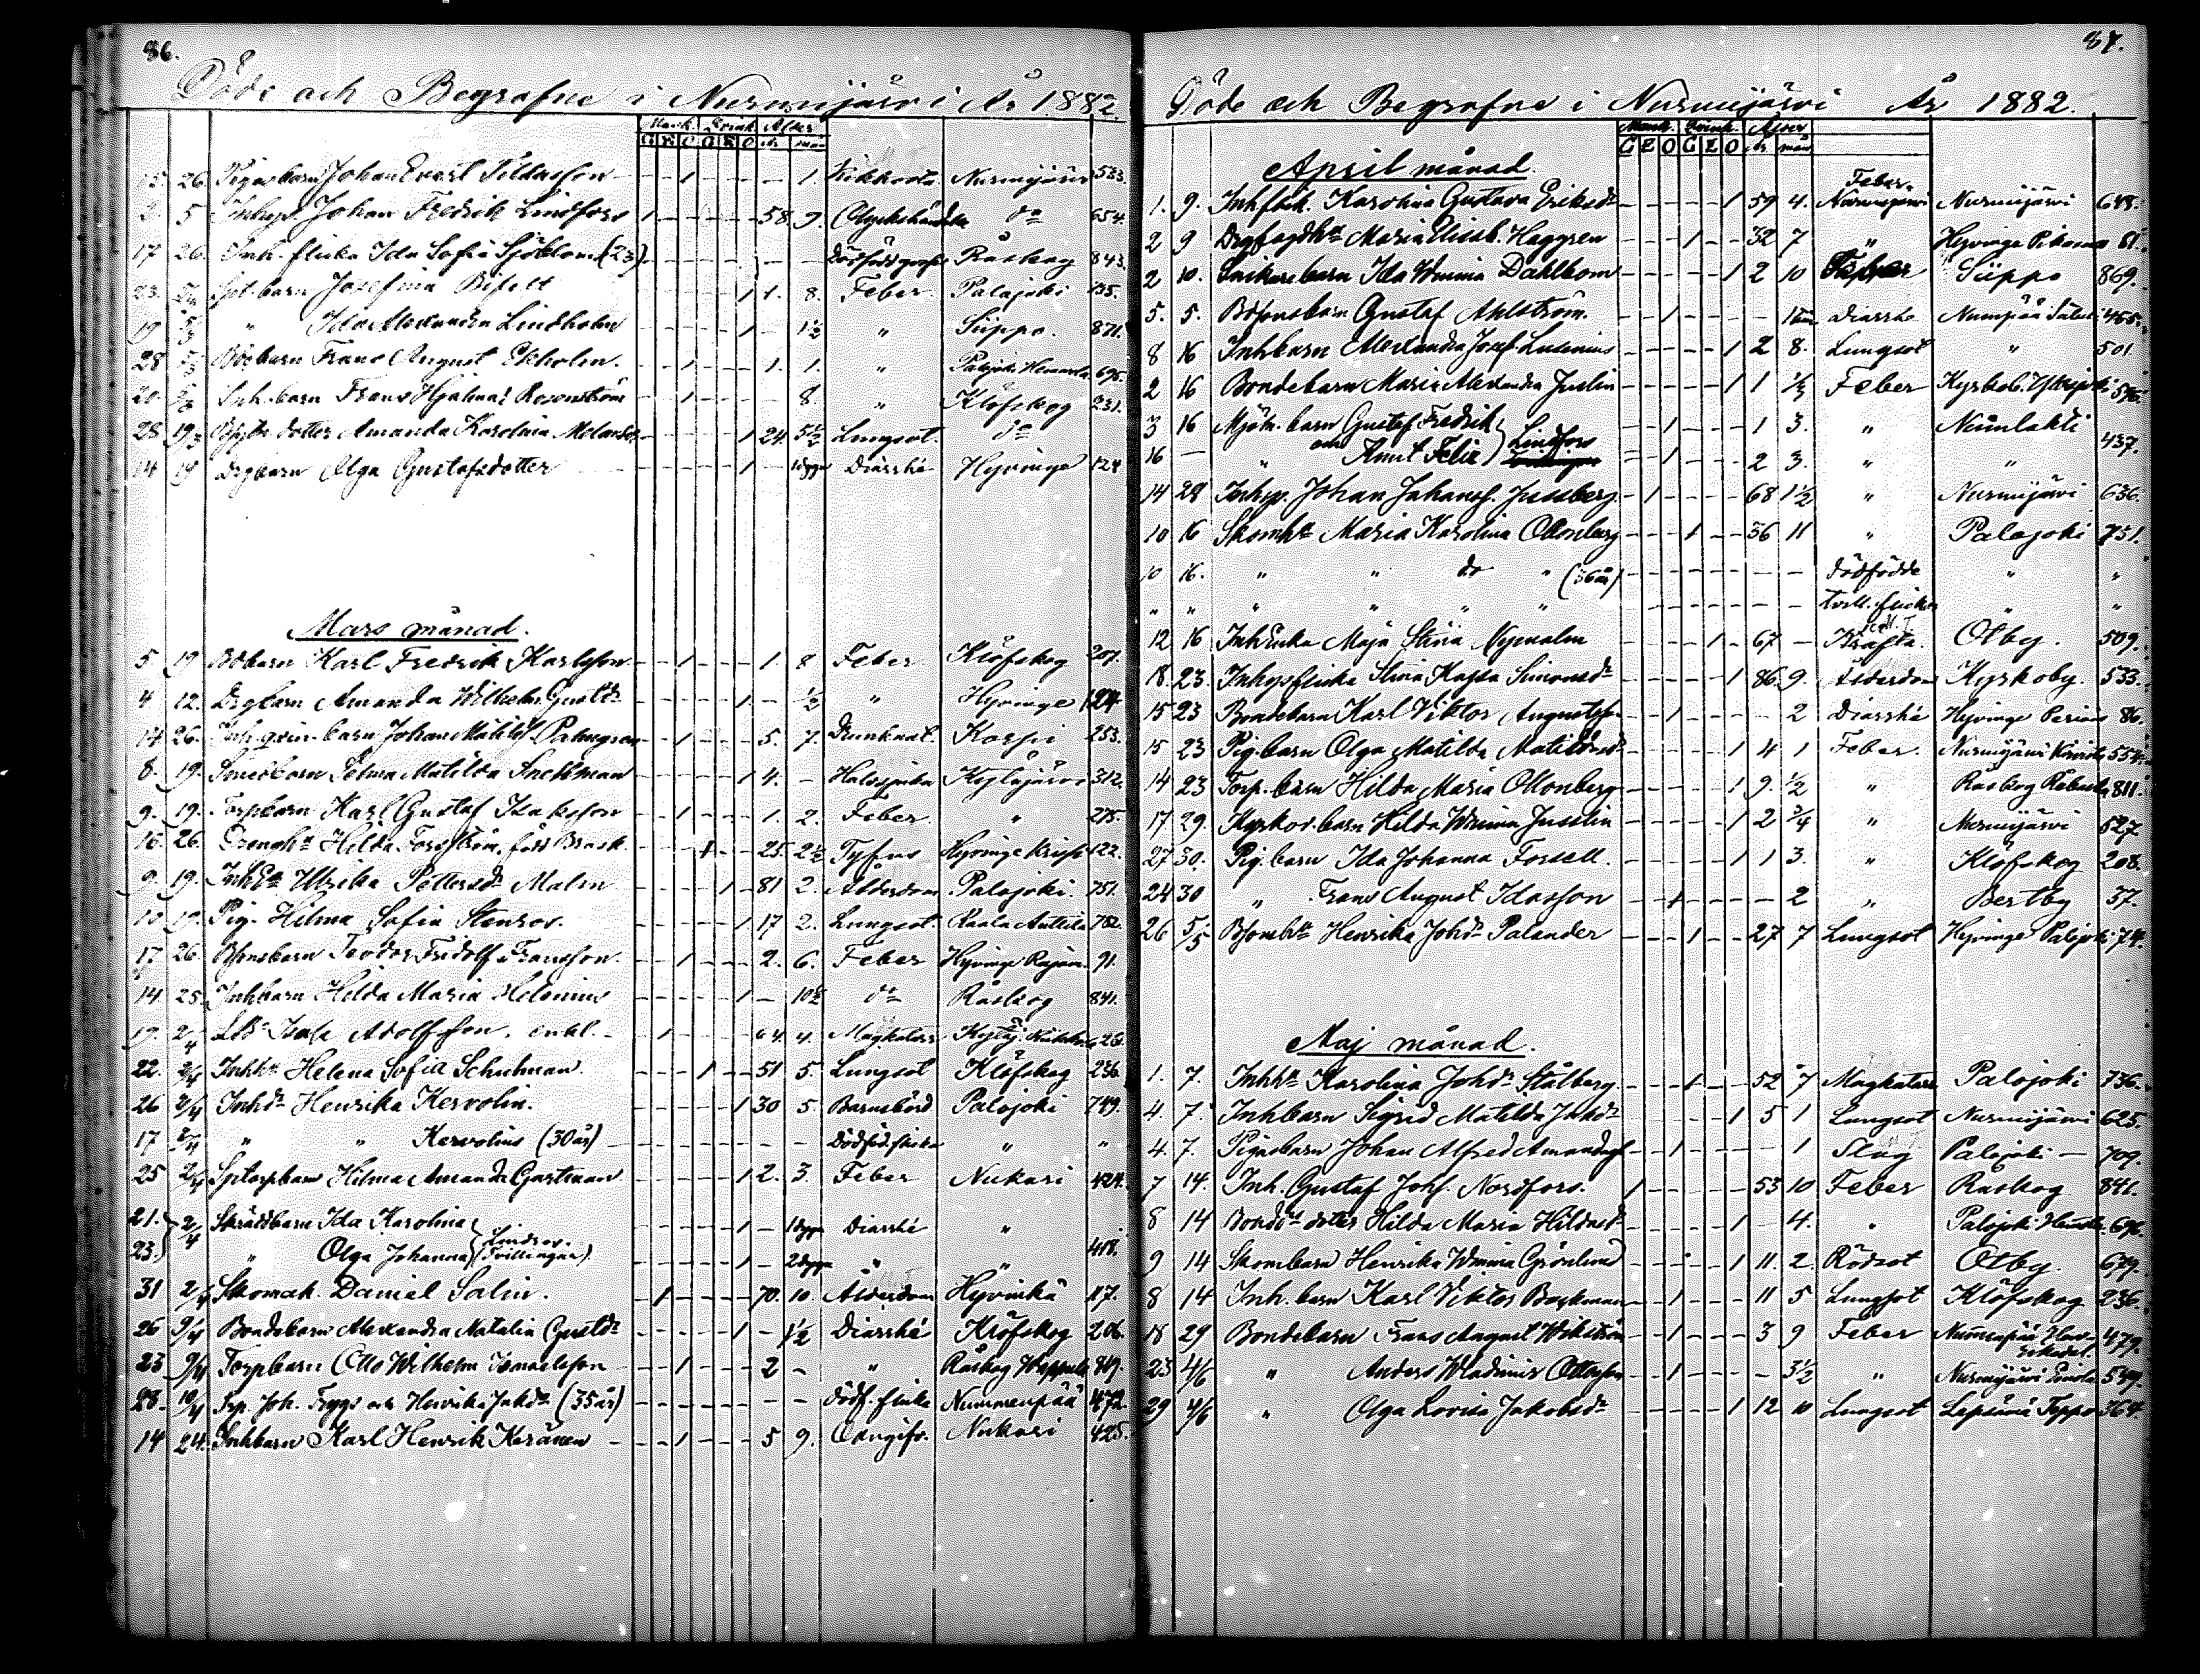 86.
Döde och Begrafne i Nurmijärvi År 1882.
Mank. Qvink. Ålder
G E O G E O år mån
15. 26. Pigasbarn Johan Evert Fildasson - - 1 - - - - 1. Kikhosta Nurmijärvi 533.
5 Inhys. Johan Fredrik Lindfors 1 - - - - - 58. 9. Olyckshändelse do 654.
17 26. Inh. flicka Ida Sofia Sjöblom (23). - - Dödfödd Råskog 843.
23. barn Josefina - - - - - 1 1. 8. Feber Palojoki 735.
19 5/3 " Ida Alexandra Lindholm - - - - - 1 - 1½ " Siippo. 871.
28 5/3 barn Frans August Ekholm. - - 1 - - - 1. 1. " Palojoki 695.
20. 5/3 Inh. barn Frans Hjalmar Rosenström - - 1 - - - - 8 " Klöfskog 231.
28 19/3 dotter Amanda Karolina - - - - - 1 24. 5½ Lungsot. do
14 19 Drgbarn Olga Gustafsdotter - - - - - 1 - Diarrhé Hyvinge 124
Mars månad.
5 19. barn Karl Fredrik Karlsson - - 1 - - - 1. 8 Feber Klöfskog 207.
4 12. Drgbarn Amanda Wilhelm. Gustdr - - - - - 1 - ½ " Hyvinge 124.
14 26. barn Johan Palmgren - - 1 - - - 5. 7. Drunknat. Korpi 253.
8. 19. Smedbarn Selma Matilda - - - - - 1 4. - Halssjuka Kytäjärvi 312.
9. 19. Torpbarn Karl Gustaf Isaksson - - 1 - - - 1. 2. Feber " 275.
16. 26. Drengh:a Hilda Forsström, född Brask - - - 1 - - 25. 2½ Tyfus Hyvinge 122.
9. 19. Ulrika Pettersd: Malm - - - - 1 - 81 2. Ålderdom Palojoki. 751.
10 19. Pig. Hilma Sofia Stenros. - - - - - 1 17 2. Lungsot. Raala 782.
17 26. barn Teodor Fridolf Fransson. - - 1 - - - 2. 6. Feber Hyvinge 91.
14. 25. Inhbarn Hilda Maria Helenius - - - - - 1 - 10½ do Råskog 841.
19. 2/4 Isak Adolfsson. enkl. - - 1 - - - - 64. 4. Magkatarr 626.
22. 2/4 Inhh:a Helena Sofia Schuhman. - - - 1 - - 51 5. Lungsot Klöfskog 236.
26 2/4 Inhdr Henrika Kervolin. - - - - - 1 30 5 Barnsbörd Palojoki 749.
17 2/4 " " Kervolins (30 år) - - - Dödfödd flicka " "
25 2/4 Hilma Amanda Gustman - - - - - 1 2. 3. Feber Nukari 424.
21. 2/4 Skräddbarn Ida Karolina - - - - - 1 - 1 dygn Diarrhé "
23. " Olga Johanna (Lindros. Tvillingar) - - - - - 1 - 2 dygn " " 418.
31 2/4 Skomak. Daniel Salin. - 1 - - - - 70. 10. Ålderdom Hyvinkä 117.
26 9/4 Bondebarn Alexandra Natalia Gustdr - - - - - 1 - 1½ Diarrhé Klöfskog 206.
23 9/4 Torpbarn Otto Wilhelm Ismaelsson - - 1 - - - 2 - " Råskog 849.
28. 10/4 Trp. Joh. och Henrika Jakdr (35 år) - - Dödf. flicka Nummenpää 472
14 24. Inhbarn Karl Henrik Keränen - - 1 - - - 5 9. Nukari 425.
87.
Döde och Begrafne i Nurmijärvi År 1882.
Mank. Qvink. Ålder
G E O G E O år mån
April månad.
1. 9. Karolina Gustava Eriksdr - - - - - 1 59 4. Feber. Nurmijärvi Nurmijärvi 648.
2 9 Maria Elisab. Haggren - - - 1 - - 32 7 " Hyvinge 61.
2 10. Snikarebarn Ida Wmina Dahlbom - - - - - 1 2 10 Siippo 869.
5. 5. barn Gustaf Ahlström. - - 1 - - - - Diarrhé 455.
8 16 Inhbarn Alexandra Josef. Lusenius - - - - - 1 2 8. Lungsot " 501
2 16 Bondebarn Maria Alexandra Juslin - - - - - 1 1 ½ Feber Kyrkob.
3 16 Mjöln. barn Gustaf Fredrik - - 1 - - - 1 3. " Numlahti
16 - " och Anut Felix) Lindfors - - 1 - - - 2 3. " " 437.
14 29 Inhys. Johan Johanss. Jussberg. - 1 - - - - 68 1½ " Nurmijärvi 636.
10 16 Skomh:a Maria Karolina Ottonberg - - - 1 - - 36 11 " Palojoki 751.
10 16. " " do " (36 år) - - - Dödfödde " "
" " " " " " - - - tvill. flickor " "
12 16 Inhenka Maja Stina Nyman - - - - 1 - 67 - Kräfta. Otby. 509.
18. 23. Inhysflicka Stina Kajsa Simonsdr - - - - - 1 86. 9. Ålderdom Kyrkoby. 533.
15 23 Bondebarn Karl Viktor Augustss. - - 1 - - - - 2 Diarrhé Hyvinge 86.
15 23 Pig. barn Olga Matilda Matildasdr - - - - - 1 4 1 Feber. Nurmijärvi 554.
14 23 Torp. barn Hilda Maria Ottonberg - - - - - 1 9. ½ " Råskog 811.
17 29. barn Hilda Wmina Jusslin - - - - - 1 2 3/4 " Nurmijärvi 527.
27 30. Pig. barn Ida Johanna Forsell. - - - - - 1 1 3. " Klöfskog 208.
24 30 " Frans August Idasson - - 1 - - - - 2 " Bertby 37.
26 5/5 Henrika Johdr Palander - - - 1 - - 27 7 Lungsot Hyvinge Palojoki 74.
Maj månad.
1. 7. Inhh:a Karolina Johdr Stålberg - - - 1 - - 52 7 Magkatarr Palojoki 736.
4. 7. Inhbarn Sigrid Matilda Johdr - - - - - 1 5 1 Lungsot Nurmijärvi 625.
4. 7. Pigasbarn Johan Alfred Amandass. - - 1 - - - - 1 Slag Palojoki - 709.
7 14. Inh. Gustaf Johs. Nordfors. 1 - - - - - 53 10 Feber Råskog 841.
8 14 dotter Hilda Maria Hildasdr - - - - - 1 - 4. " Palojoki 696.
9 14 Skombarn Henrika Wmina Grönlund - - - - - 1 11. 2. Rödsot Otby. 679.
8 14 Inh. barn Karl Viktor Backman - - 1 - - - 11 5 Lungsot Klöfskog 236.
18 29 Bondebarn Frans August Wikström - - 1 - - - 3 9 Feber Nummenpää 479.
23 4/6 " Anders Wladimir Ottosson - - 1 - - - - 3½ " Nurmijärvi 549.
29 4/6 " Olga Lovisa Jakobsdr - - - - - 1 12 10 Lungsot Lepsämä Teppo 364.